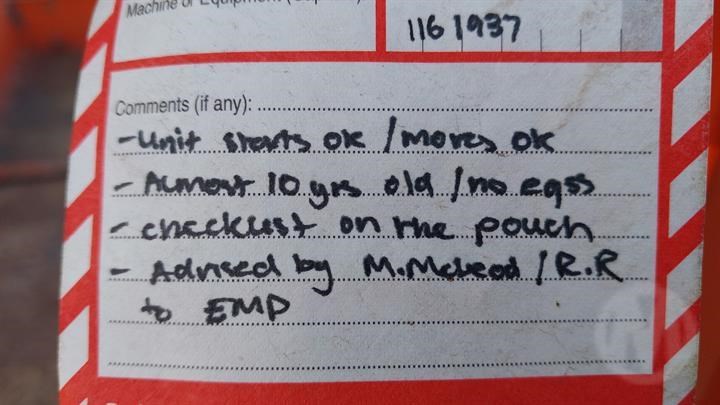 Machine or Equipment
1161937
Comments (if any):
- Unit starts ok / moves ok
- Almost 10 yrs old / no eqss
- checklist on the pouch
- Advised by M.McLeod / R.R
to EMP